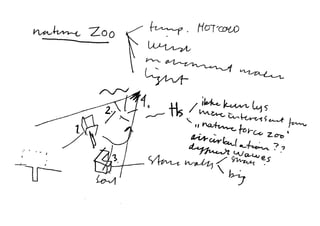 nature ZOO
temp. HOT COLD
Wind
movement water
light
2.
4.
1.
3.
more interessant
"nature force zoo"
air circulation??
different waves
stone walls
small
big